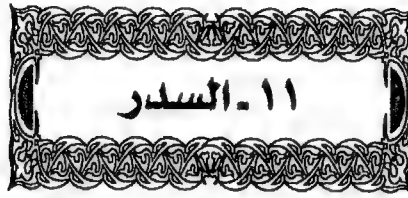 ١١ ـ السدر